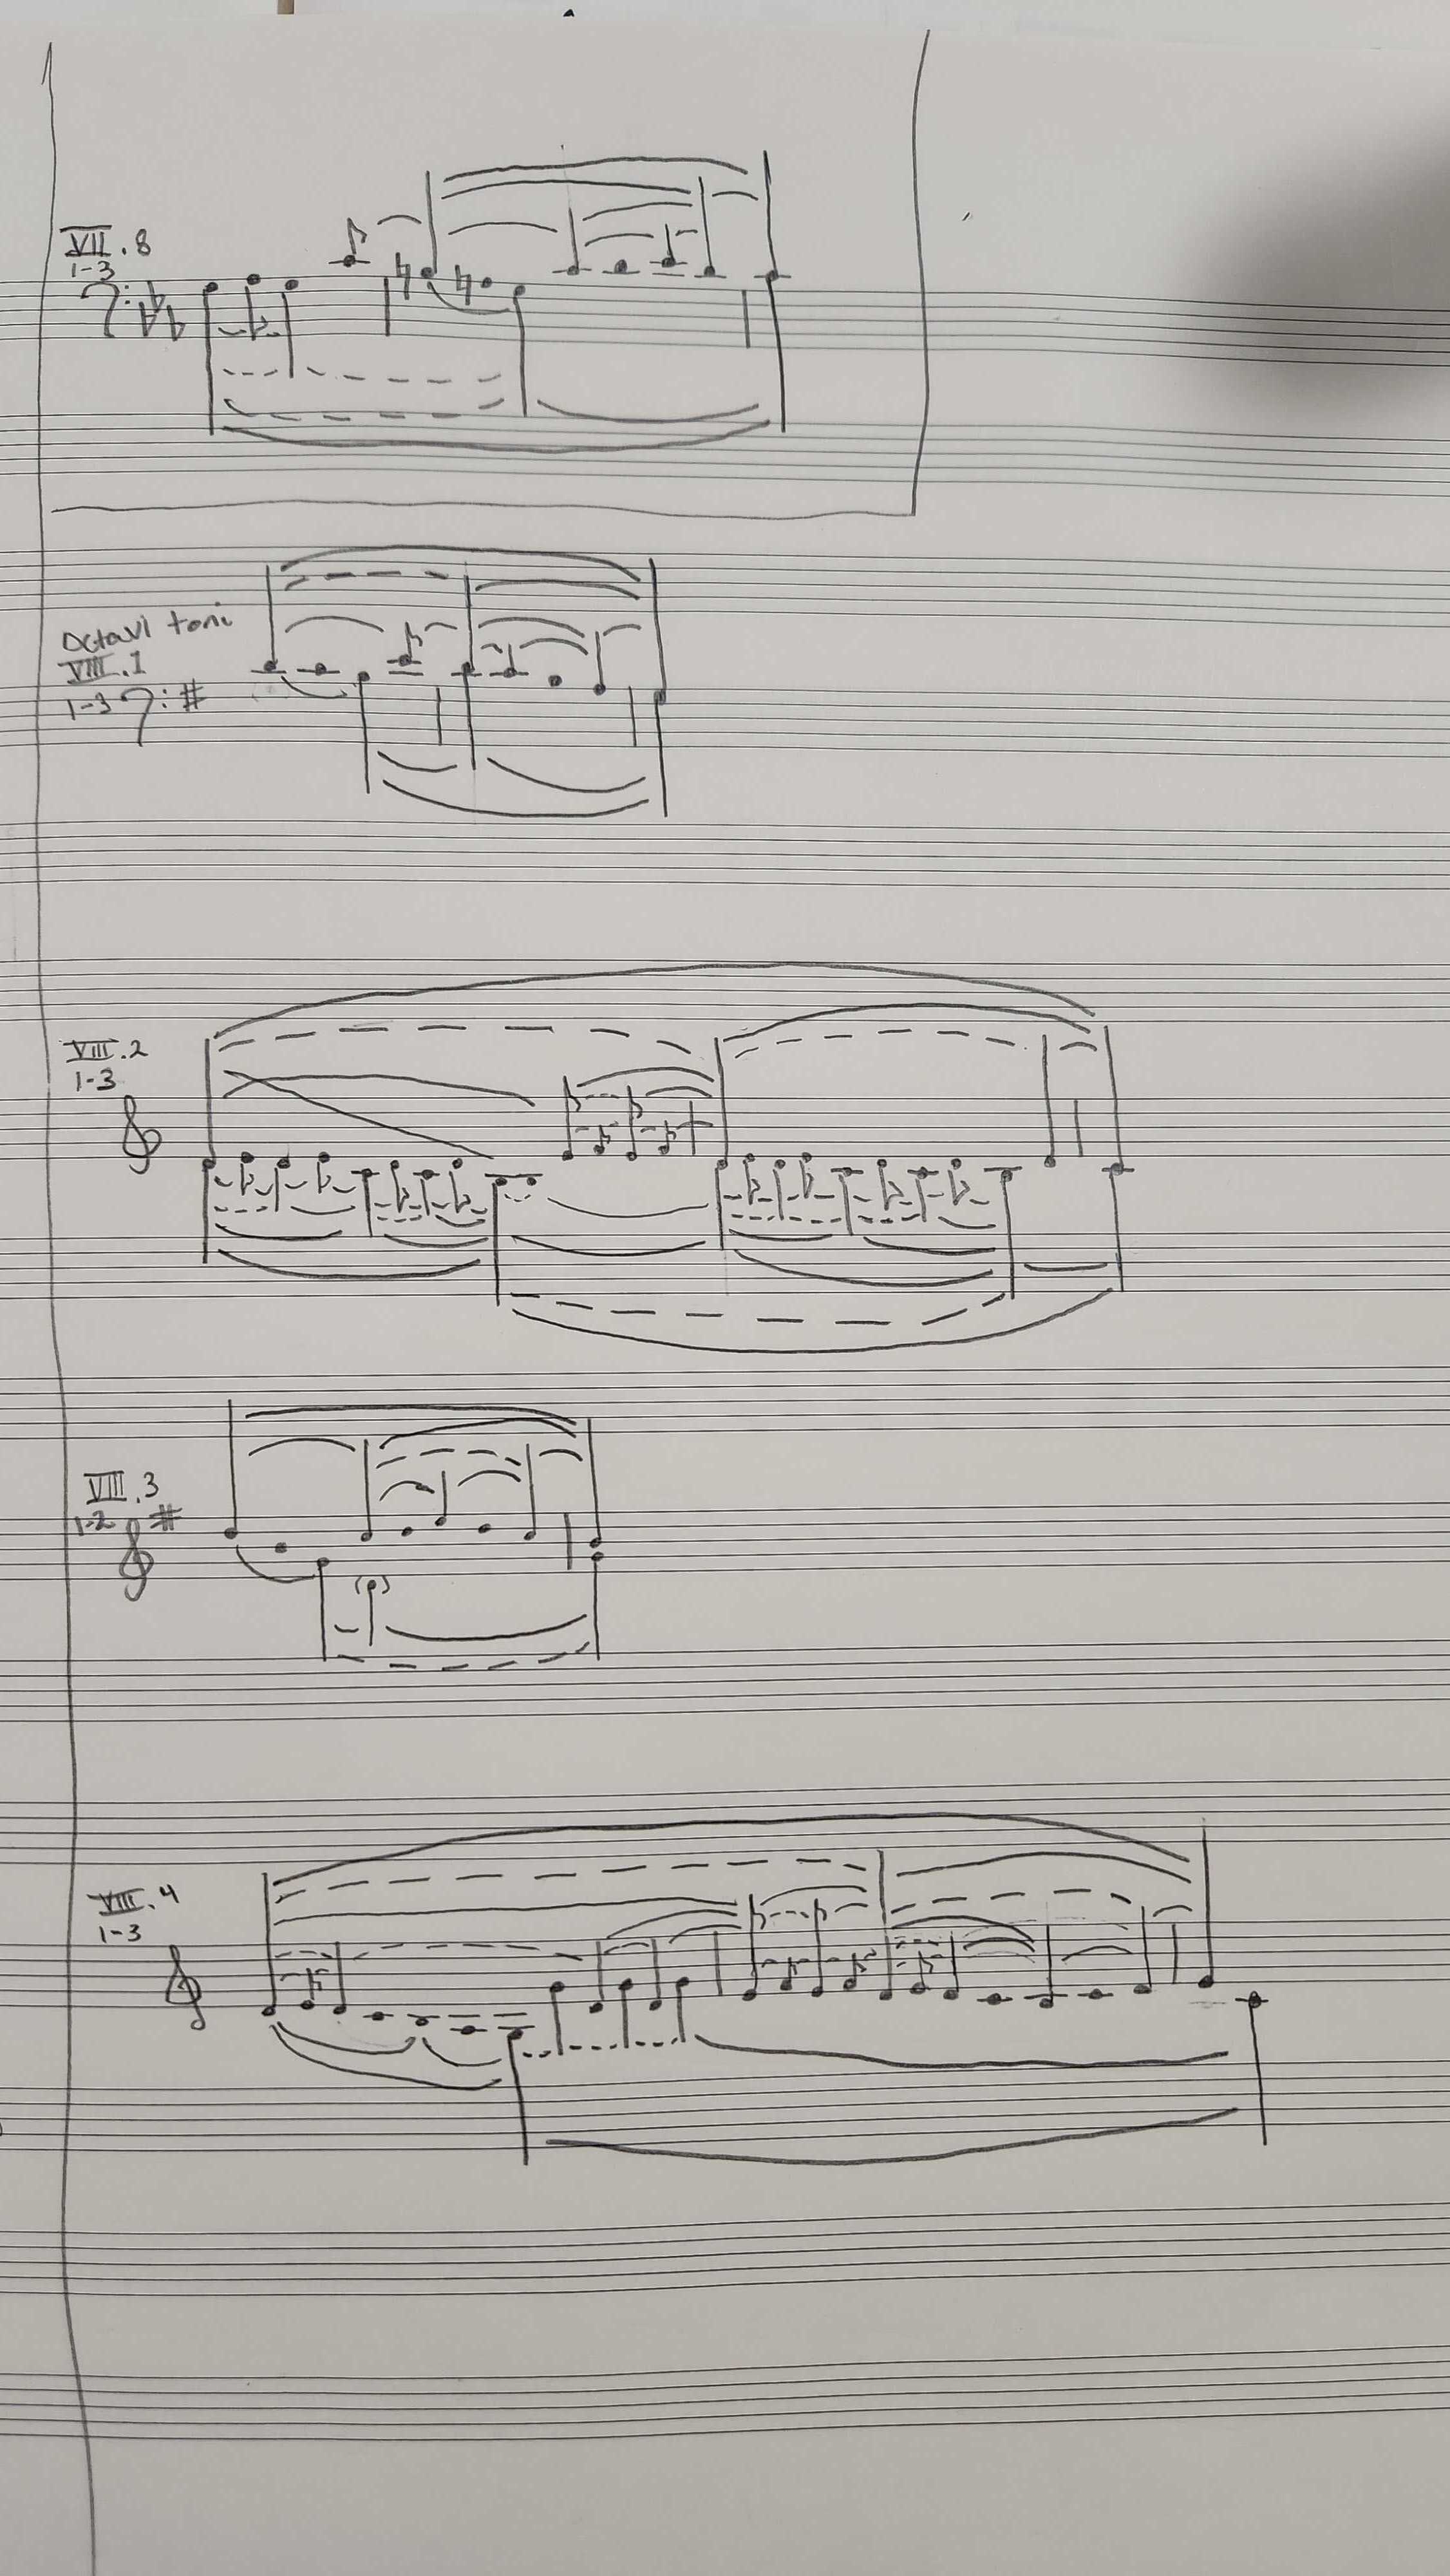 VII.8
1-3
Octavi toni
VIII.1
1-3
VIII.2
1-3
VIII.3
1-2
VIII.4
1-3